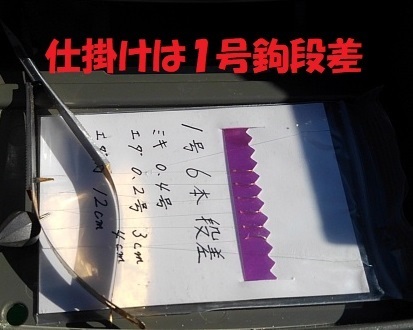 仕掛けは１号鉤段差
1号 6本 段差
ミキ 0.4号
エダ 0.2号 3cm
4cm
エダ間 12cm